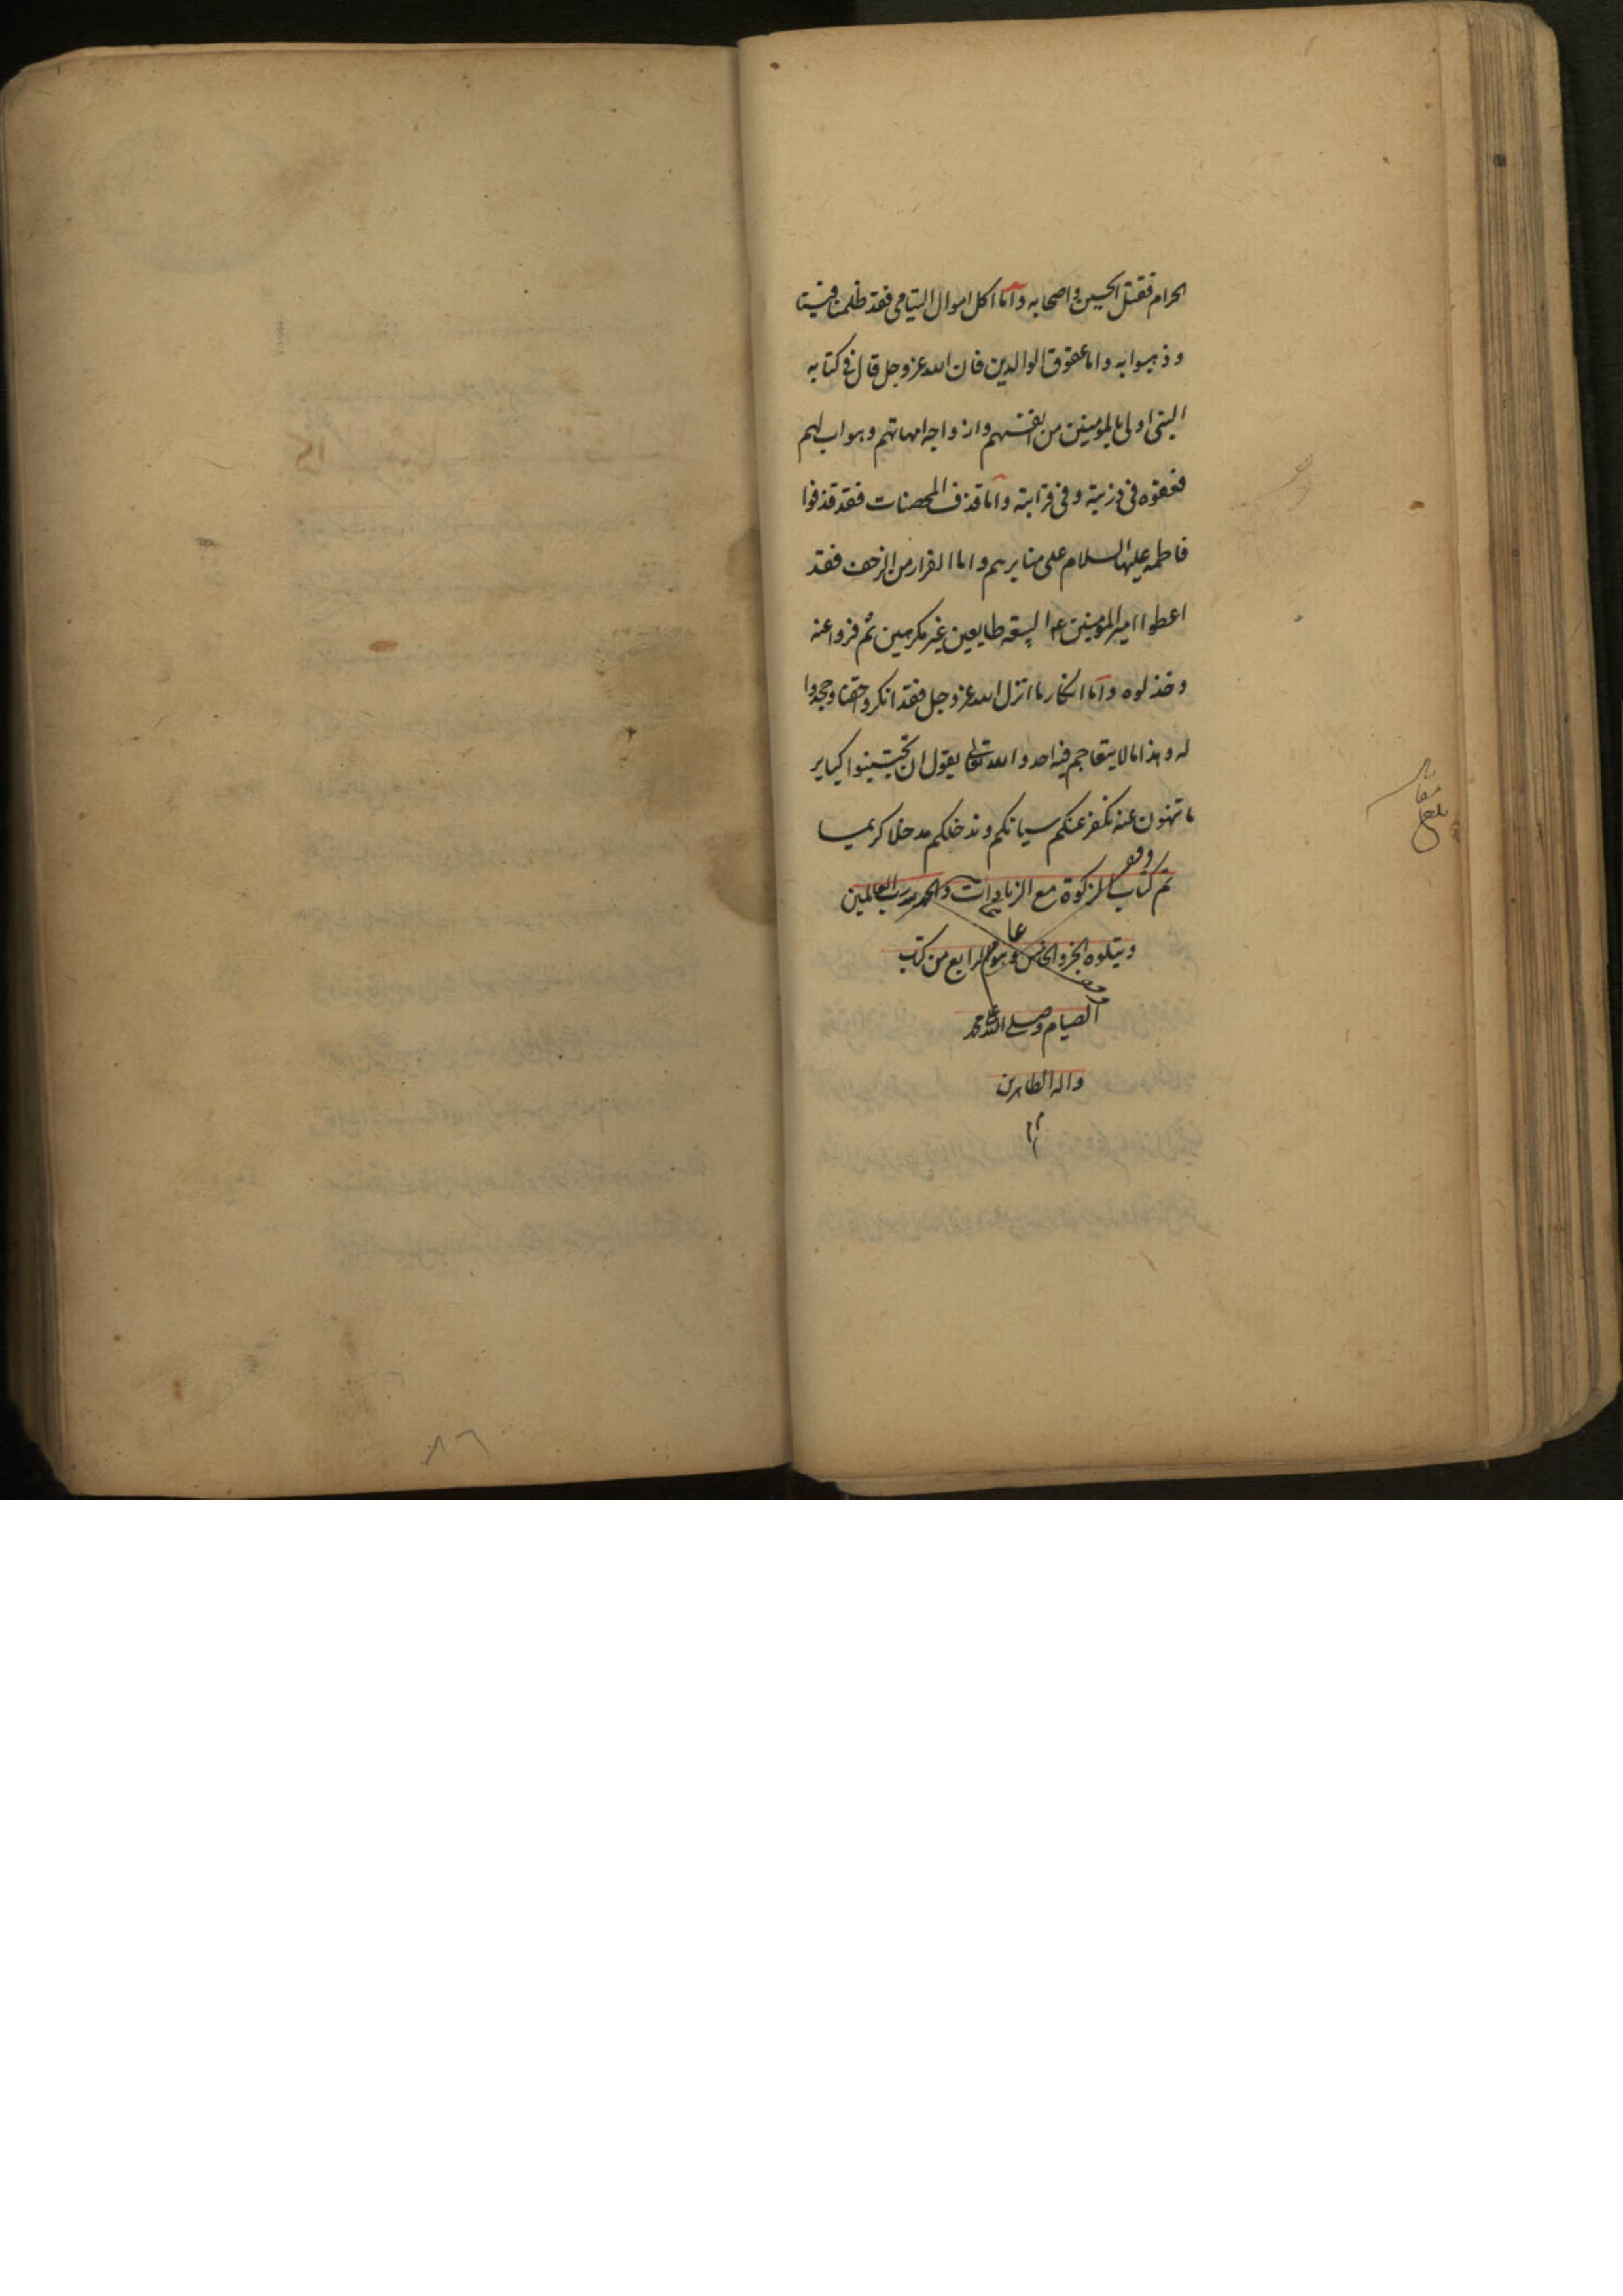 الحرام فقتل الحسين و اصحابه و اما اكل اموال اليتامى فقد ظلمنا فيئنا
و ذهبوا به و اما عقوق الوالدين فان الله عز و جل قال فى كتابه
النبى اولى بالمومنين من انفسهم و ازواجه امهاتهم و هو اب لهم
فعقوه فى ذريته و فى قرابته و اما قذف المحصنات فقد قذفوا
فاطمه عليها السلام على منابرهم و اما الفرار من الزحف فقد
اعطوا امير المومنين ع البيعه طايعين غير مكرهين ثم فروا عنه
و خذلوه و اما انكار ما انزل الله عز و جل فقد انكروا حقنا و جحدوا
له و هذا مالا يتعاجم فيه احد و الله تعالى يقول ان تجتنبوا كباير
ما تنهون عنه نكفر عنكم سياتكم و ندخلكم مدخلا كريما
تم كتاب الزكوة مع الزيادات و الحمد لله رب العالمين
و يتلوه الجزو الخامس و هو الرابع من كتب
الصيام و صلى الله على محمد
و اله الطاهرين
وقف
عام
بلغ
٨٦